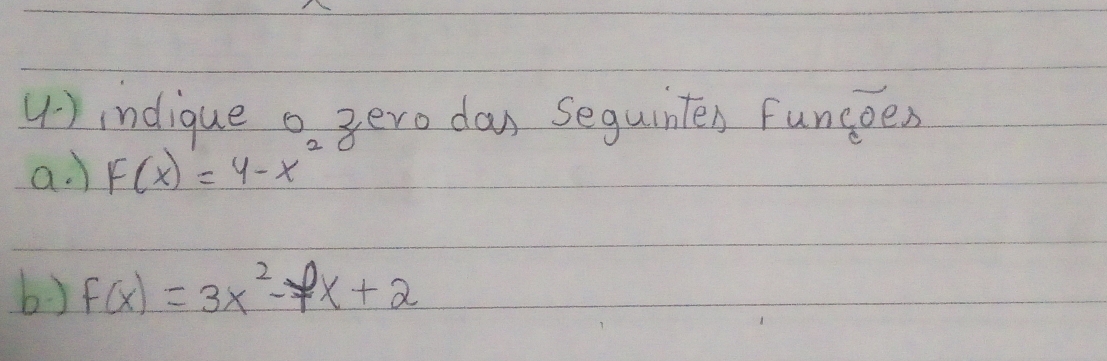 4.) indique o zero das Seguintes Funções
a.) F(x) = 4-x²
b.) F(x) = 3x²-7x+2